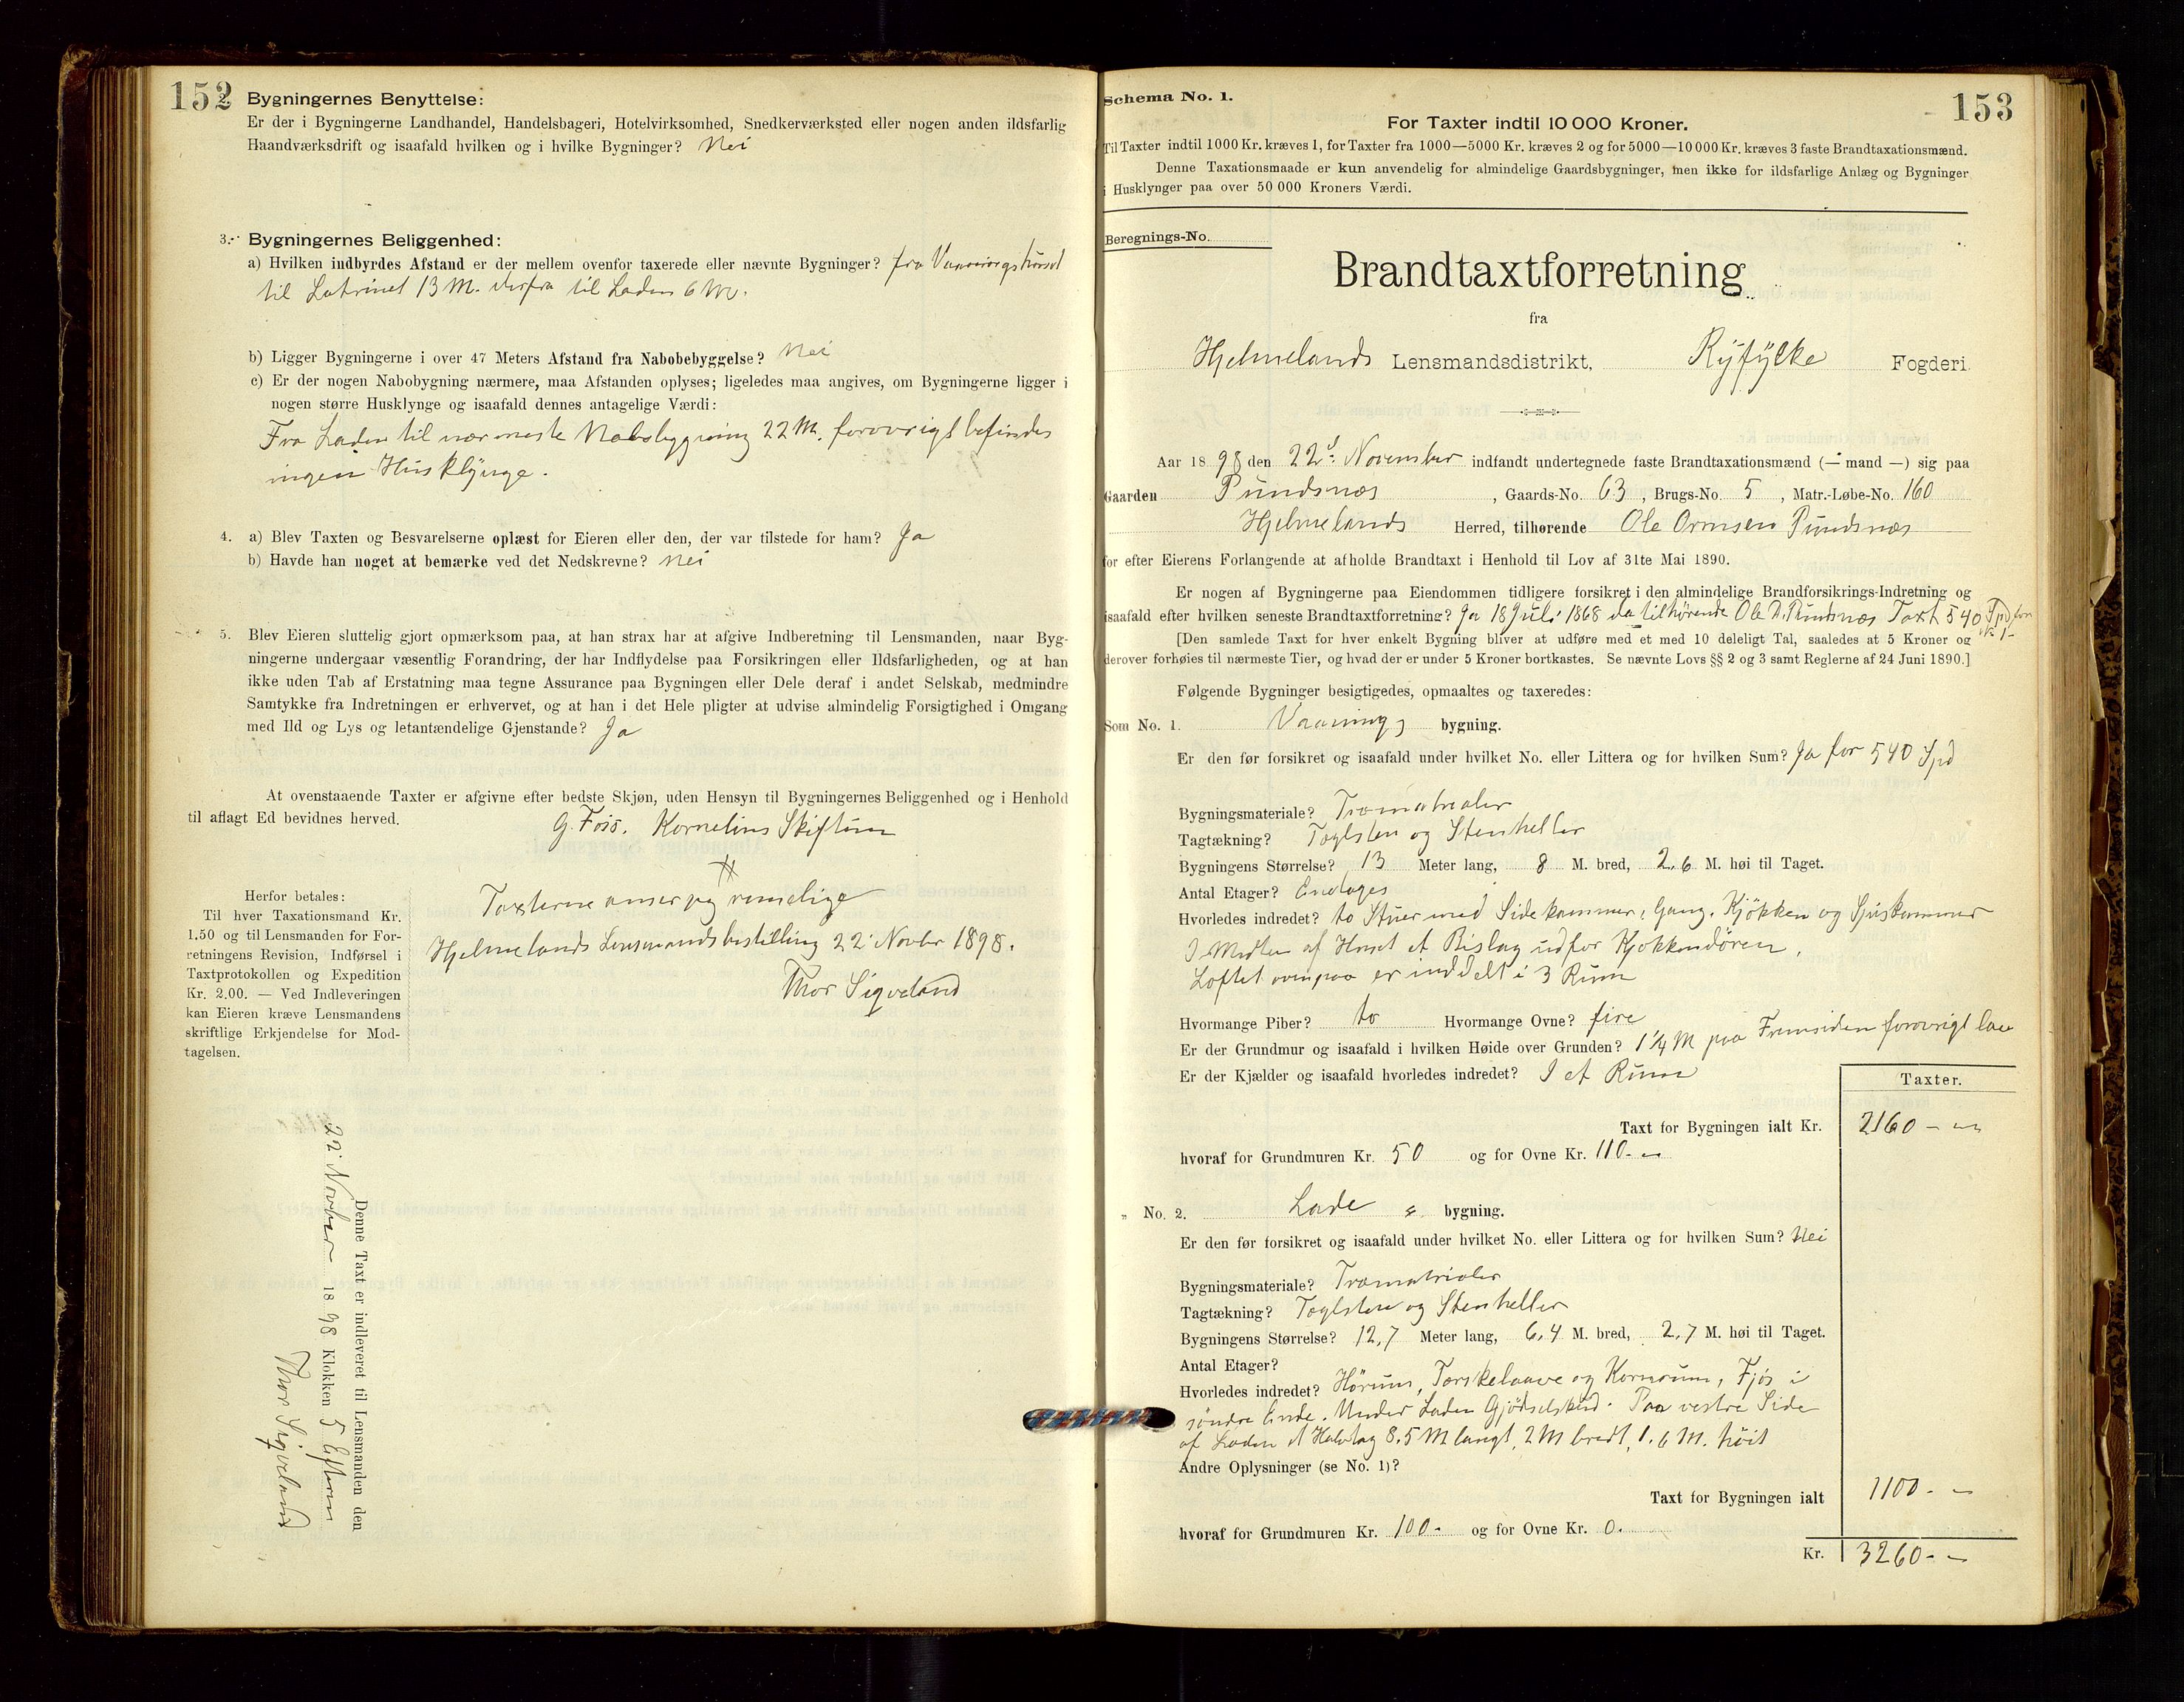 152
Bygningernes Benyttelse:
Er der i Bygningerne Landhandel, Handelsbageri, Hotelvirksomhed, Snedkerværksted eller nogen anden ildsfarlig
Haandværksdrift og isaafald hvilken og i hvilke Bygninger? Nei
3. Bygningernes Beliggenhed:
a) Hvilken indbyrdes Afstand er der mellem ovenfor taxerede eller nævnte Bygninger? fra Vaaningshuset
til Latrinet 13 M. derfra til Laden 6 M.
b) Ligger Bygningerne i over 47 Meters Afstand fra Nabobebyggelse? Nei
c) Er der nogen Nabobygning nærmere, maa Afstanden oplyses; ligeledes maa angives, om Bygningerne ligger i
nogen større Husklynge og isaafald dennes antagelige Værdi:
Fra Laden til nærmeste Nabobygning 22 M. forøvrigt befindes
ingen Husklynge.
4. a) Blev Taxten og Besvarelserne oplæst for Eieren eller den, der var tilstede for ham? Ja
b) Havde han noget at bemærke ved det Nedskrevne? Nei
5. Blev Eieren sluttelig gjort opmærksom paa, at han strax har at afgive Indberetning til Lensmanden, naar Byg-
ningerne undergaar væsentlig Forandring, der har Indflydelse paa Forsikringen eller Ildsfarligheden, og at han
ikke uden Tab af Erstatning maa tegne Assurance paa Bygningen eller Dele deraf i andet Selskab, medmindre
Samtykke fra Indretningen er erhvervet, og at han i det Hele pligter at udvise almindelig Forsigtighed i Omgang
med Ild og Lys og letantændelige Gjenstande? Ja
At ovenstaaende Taxter er afgivne efter bedste Skjøn, uden Hensyn til Bygningernes Beliggenhed og i Henhold
til aflagt Ed bevidnes herved.
G. Kornelius Skiftun
Taxterne anser jeg rimelige
Hjelmelands Lensmandsbestilling 22' Novbr 1898.
Thor Sigveland
Herfor betales:
Til hver Taxationsmand Kr.
1.50 og til Lensmanden for For-
retningens Revision, Indførsel i
Taxtprotokollen og Expedition
Kr. 2.00. — Ved Indleveringen
kan Eieren kræve Lensmandens
skriftlige Erkjendelse for Mod-
tagelsen.
Denne Taxt er indleveret til Lensmanden den
22' November 1898 Klokken 5 Eftrm
Thor Sigveland
Schema No. 1.
153
For Taxter indtil 10 000 Kroner.
Til Taxter indtil 1000 Kr. kræves 1, for Taxter fra 1000—5000 Kr. kræves 2 og for 5000—10 000 Kr. kræves 3 faste Brandtaxationsmænd.
Denne Taxationsmaade er kun anvendelig for almindelige Gaardsbygninger, men ikke for ildsfarlige Anlæg og Bygninger
i Husklynger paa over 50 000 Kroners Værdi.
Beregnings-No.
Brandtaxtforretning
fra
Hjelmelands Lensmandsdistrikt, Ryfylke Fogderi.
Aar 1898 den 22d November indfandt undertegnede faste Brandtaxationsmænd (— mand —) sig paa
Gaarden Pundsnæs, Gaards-No. 63, Brugs-No. 5, Matr.-Løbe-No. 160
Hjelmelands Herred, tilhørende Ole Ormsen Pundsnæs
for efter Eierens Forlangende at afholde Brandtaxt i Henhold til Lov af 31te Mai 1890.
Er nogen af Bygningerne paa Eiendommen tidligere forsikret i den almindelige Brandforsikrings-Indretning og
isaafald efter hvilken seneste Brandtaxtforretning? Ja 18 Juli 1868 da tilhørende Ole Pundsnæs Taxt 540 Spd for
№ 1
[Den samlede Taxt for hver enkelt Bygning bliver at udføre med et med 10 deleligt Tal, saaledes at 5 Kroner og
derover forhøies til nærmeste Tier, og hvad der er under 5 Kroner bortkastes. Se nævnte Lovs §§ 2 og 3 samt Reglerne af 24 Juni 1890.]
Følgende Bygninger besigtigedes, opmaaltes og taxeredes:
Som No. 1. Vaanings bygning.
Er den før forsikret og isaafald under hvilket No. eller Littera og for hvilken Sum? Ja for 540 Spd
Bygningsmateriale? Træmatrialer
Tagtækning? Taglsten og Stenheller
Bygningens Størrelse? 13 Meter lang, 8 M. bred, 2,6 M. høi til Taget.
Antal Etager? Enetages
Hvorledes indredet? to Stuer med Sidekammer, Gang, Kjøkken og Spiskammer
I Midten af Huset et Bislag udfor Kjøkkendøren.
Loftet ovenpaa er inddelt i 3 Rum
Hvormange Piber? to Hvormange Ovne? fire
Er der Grundmur og isaafald i hvilken Høide over Grunden? 1¼ M paa Fremsiden forøvrigt lav
Er der Kjælder og isaafald hvorledes indredet? I et Rum
Taxter.
Taxt for Bygningen ialt Kr. 2160 -
hvoraf for Grundmuren Kr. 50 og for Ovne Kr. 110. -
" No. 2. Lade bygning.
Er den før forsikret og isaafald under hvilket No. eller Littera og for hvilken Sum? Nei
Bygningsmateriale? Træmatrialer
Tagtækning? Taglsten og Stenheller
Bygningens Størrelse? 12,7 Meter lang, 6,4 M. bred, 2,7 M. høi til Taget.
Antal Etager?
Hvorledes indredet? Hørum, Tærskelaave og Kornrum, Fjøs i
søndre Ende. Under Laden Gjødselskud. Paa vestre Side
af Laden et Halvtag 8,5 M langt, 2 M bredt, 1,6 M. høit
Andre Oplysninger (se No. 1)?
Taxt for Bygningen ialt 1100 - -
hvoraf for Grundmuren Kr. 100 - og for Ovne Kr. 0.
Kr. 3260 - -